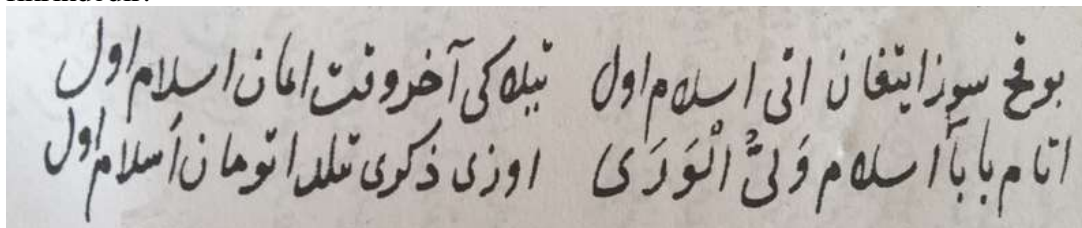 سوز ایتغان اتی اسلام اول تیلاکی آخر وقت امان اسلام اول
اتام بابا اسلام وَلیُّ الْوَرَی اوزی ذکری تیلدا تومان اسلام اول